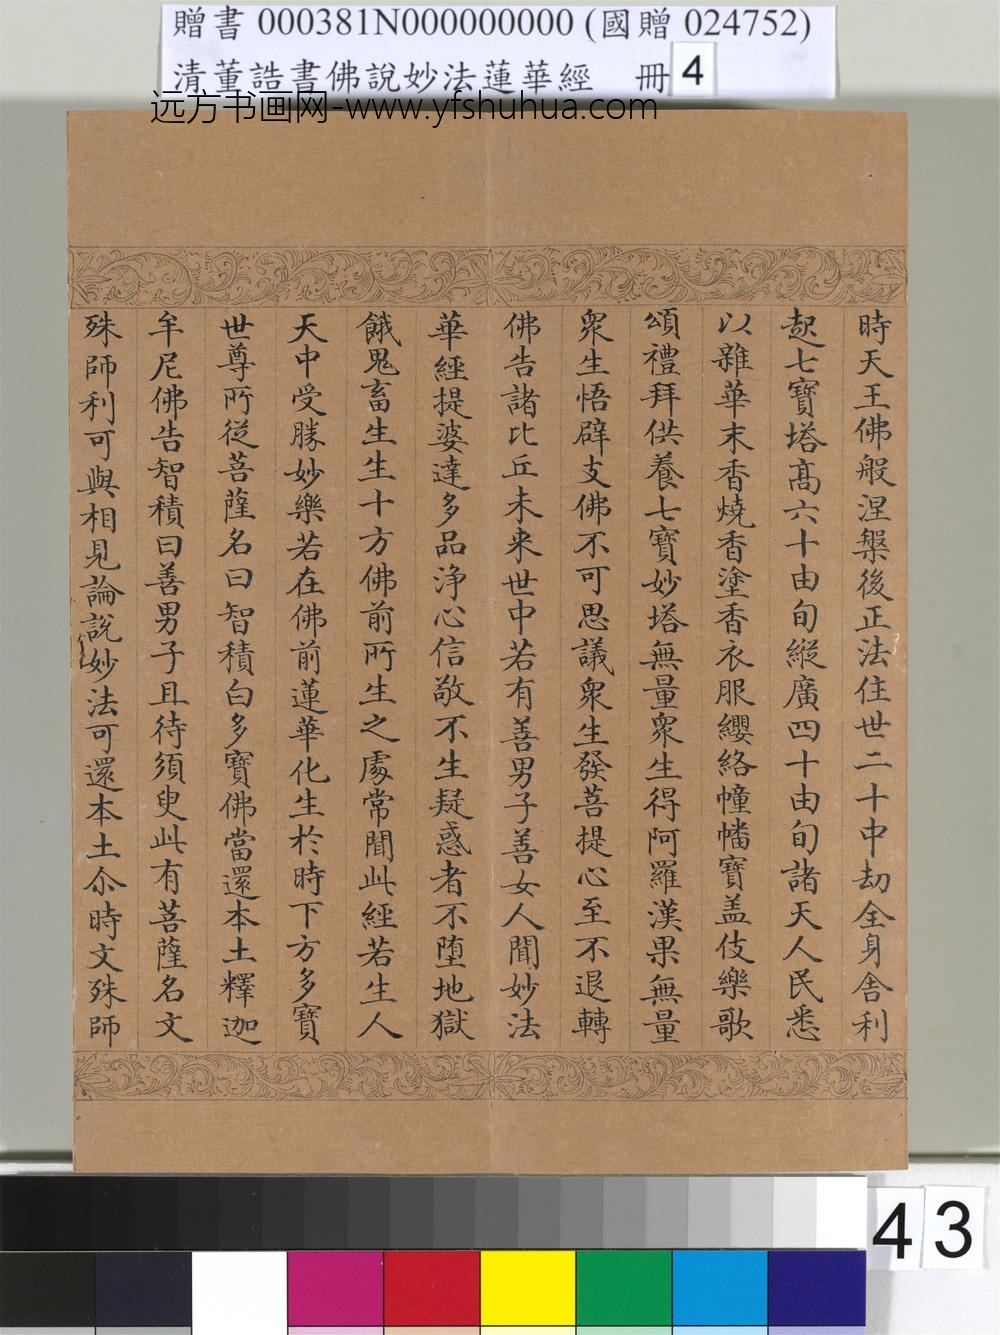 贈書 000381N000000000 (國贈 024752)
清董誥書佛說妙法蓮華經 冊 4
远方书画网-www.yfshuhua.com
時天王佛般涅槃後正法住世二十中劫全身舍利
起七寶塔高六十由旬縱廣四十由旬諸天人民悉
以雜華末香燒香塗香衣服纓絡幢幡寶盖伎樂歌
頌禮拜供養七寶妙塔無量衆生得阿羅漢果無量
衆生悟辟支佛不可思議衆生發菩提心至不退轉
佛告諸比丘未来世中若有善男子善女人聞妙法
華經提婆達多品淨心信敬不生疑惑者不墮地獄
餓鬼畜生生十方佛前所生之處常聞此經若生人
天中受勝妙樂若在佛前蓮華化生於時下方多寶
世尊所從菩薩名曰智積白多寶佛當還本土釋迦
牟尼佛告智積曰善男子且待須臾此有菩薩名文
殊師利可與相見論說妙法可還本土尒時文殊師
43